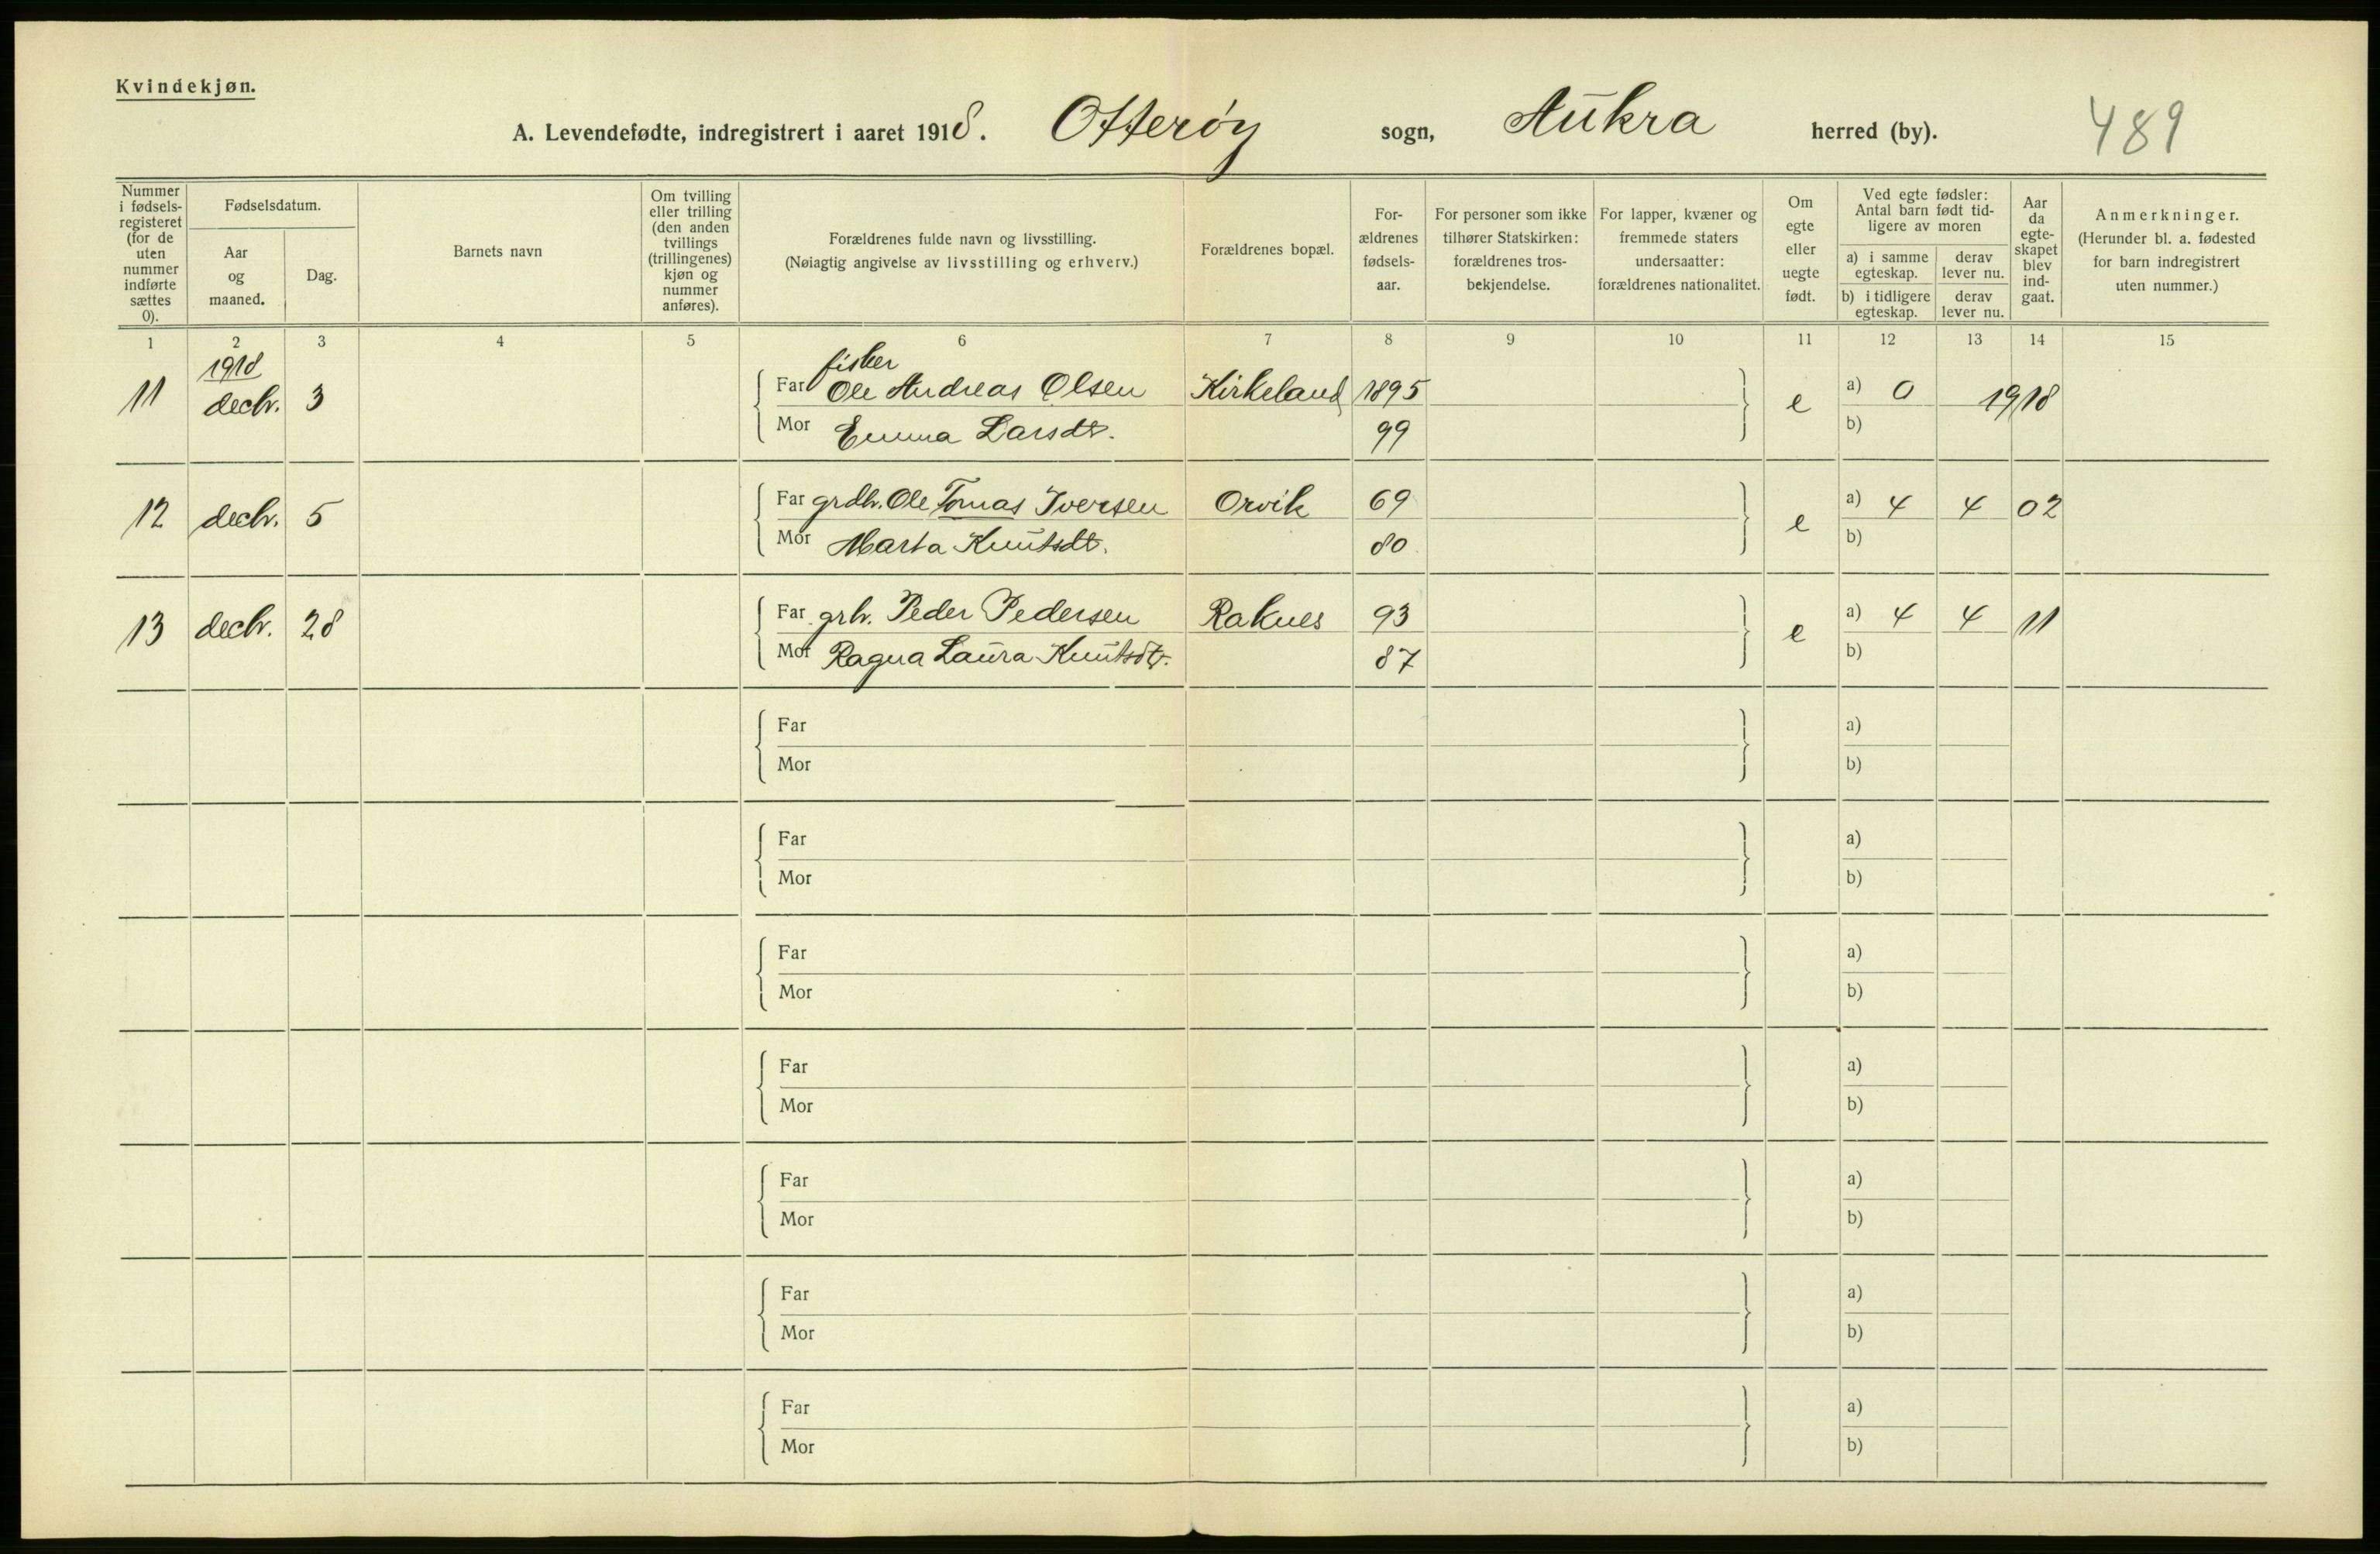 Kvindekjøn.
A. Levendefødte, indregistrert i aaret 1918. Otterøy sogn, Aukra herred (by). 489
Nummer i fødsels-registeret (for de uten nummer indførte sættes 0).
Fødselsdatum.
Aar og maaned.
Dag.
Barnets navn
Om tvilling eller trilling (den anden tvillings (trillingenes) kjøn og nummer anføres).
Forældrenes fulde navn og livsstilling.
(Nøiagtig angivelse av livsstilling og erhverv.)
Forældrenes bopæl.
For-ældrenes fødsels-aar.
For personer som ikke tilhører Statskirken: forældrenes tros-bekjendelse.
For lapper, kvæner og fremmede staters undersaatter: forældrenes nationalitet.
Om egte eller uegte født.
Ved egte fødsler: Antal barn født tid-ligere av moren
a) i samme egteskap.
derav lever nu.
b) i tidligere egteskap.
derav lever nu.
Aar da egte-skapet blev ind-gaat.
Anmerkninger.
(Herunder bl. a. fødested for barn indregistrert uten nummer.)
1 2 3 4 5 6 7 8 9 10 11 12 13 14 15
1918 fisker
11 decbr. 3 Far Ole Andreas Olsen Kirkeland 1895 e a) 0 1918
Mor Emma Larsdtr. 99 b)
12 decbr. 5 Far grdbr. Ole Tomas Iversen Orvik 69 e a) 4 4 02
Mor Marta Knutsdtr. 80 b)
13 decbr. 28 Far grbr. Peder Pedersen Raknes 93 e a) 4 4 11
Mor Ragna Laura Knutsdtr. 87 b)
Far a)
Mor b)
Far a)
Mor b)
Far a)
Mor b)
Far a)
Mor b)
Far a)
Mor b)
Far a)
Mor b)
Far a)
Mor b)